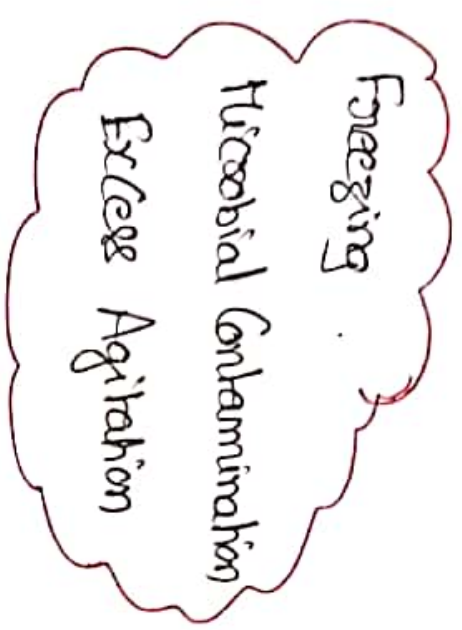 Freezing
Microbial Contamination
Excess Agitation